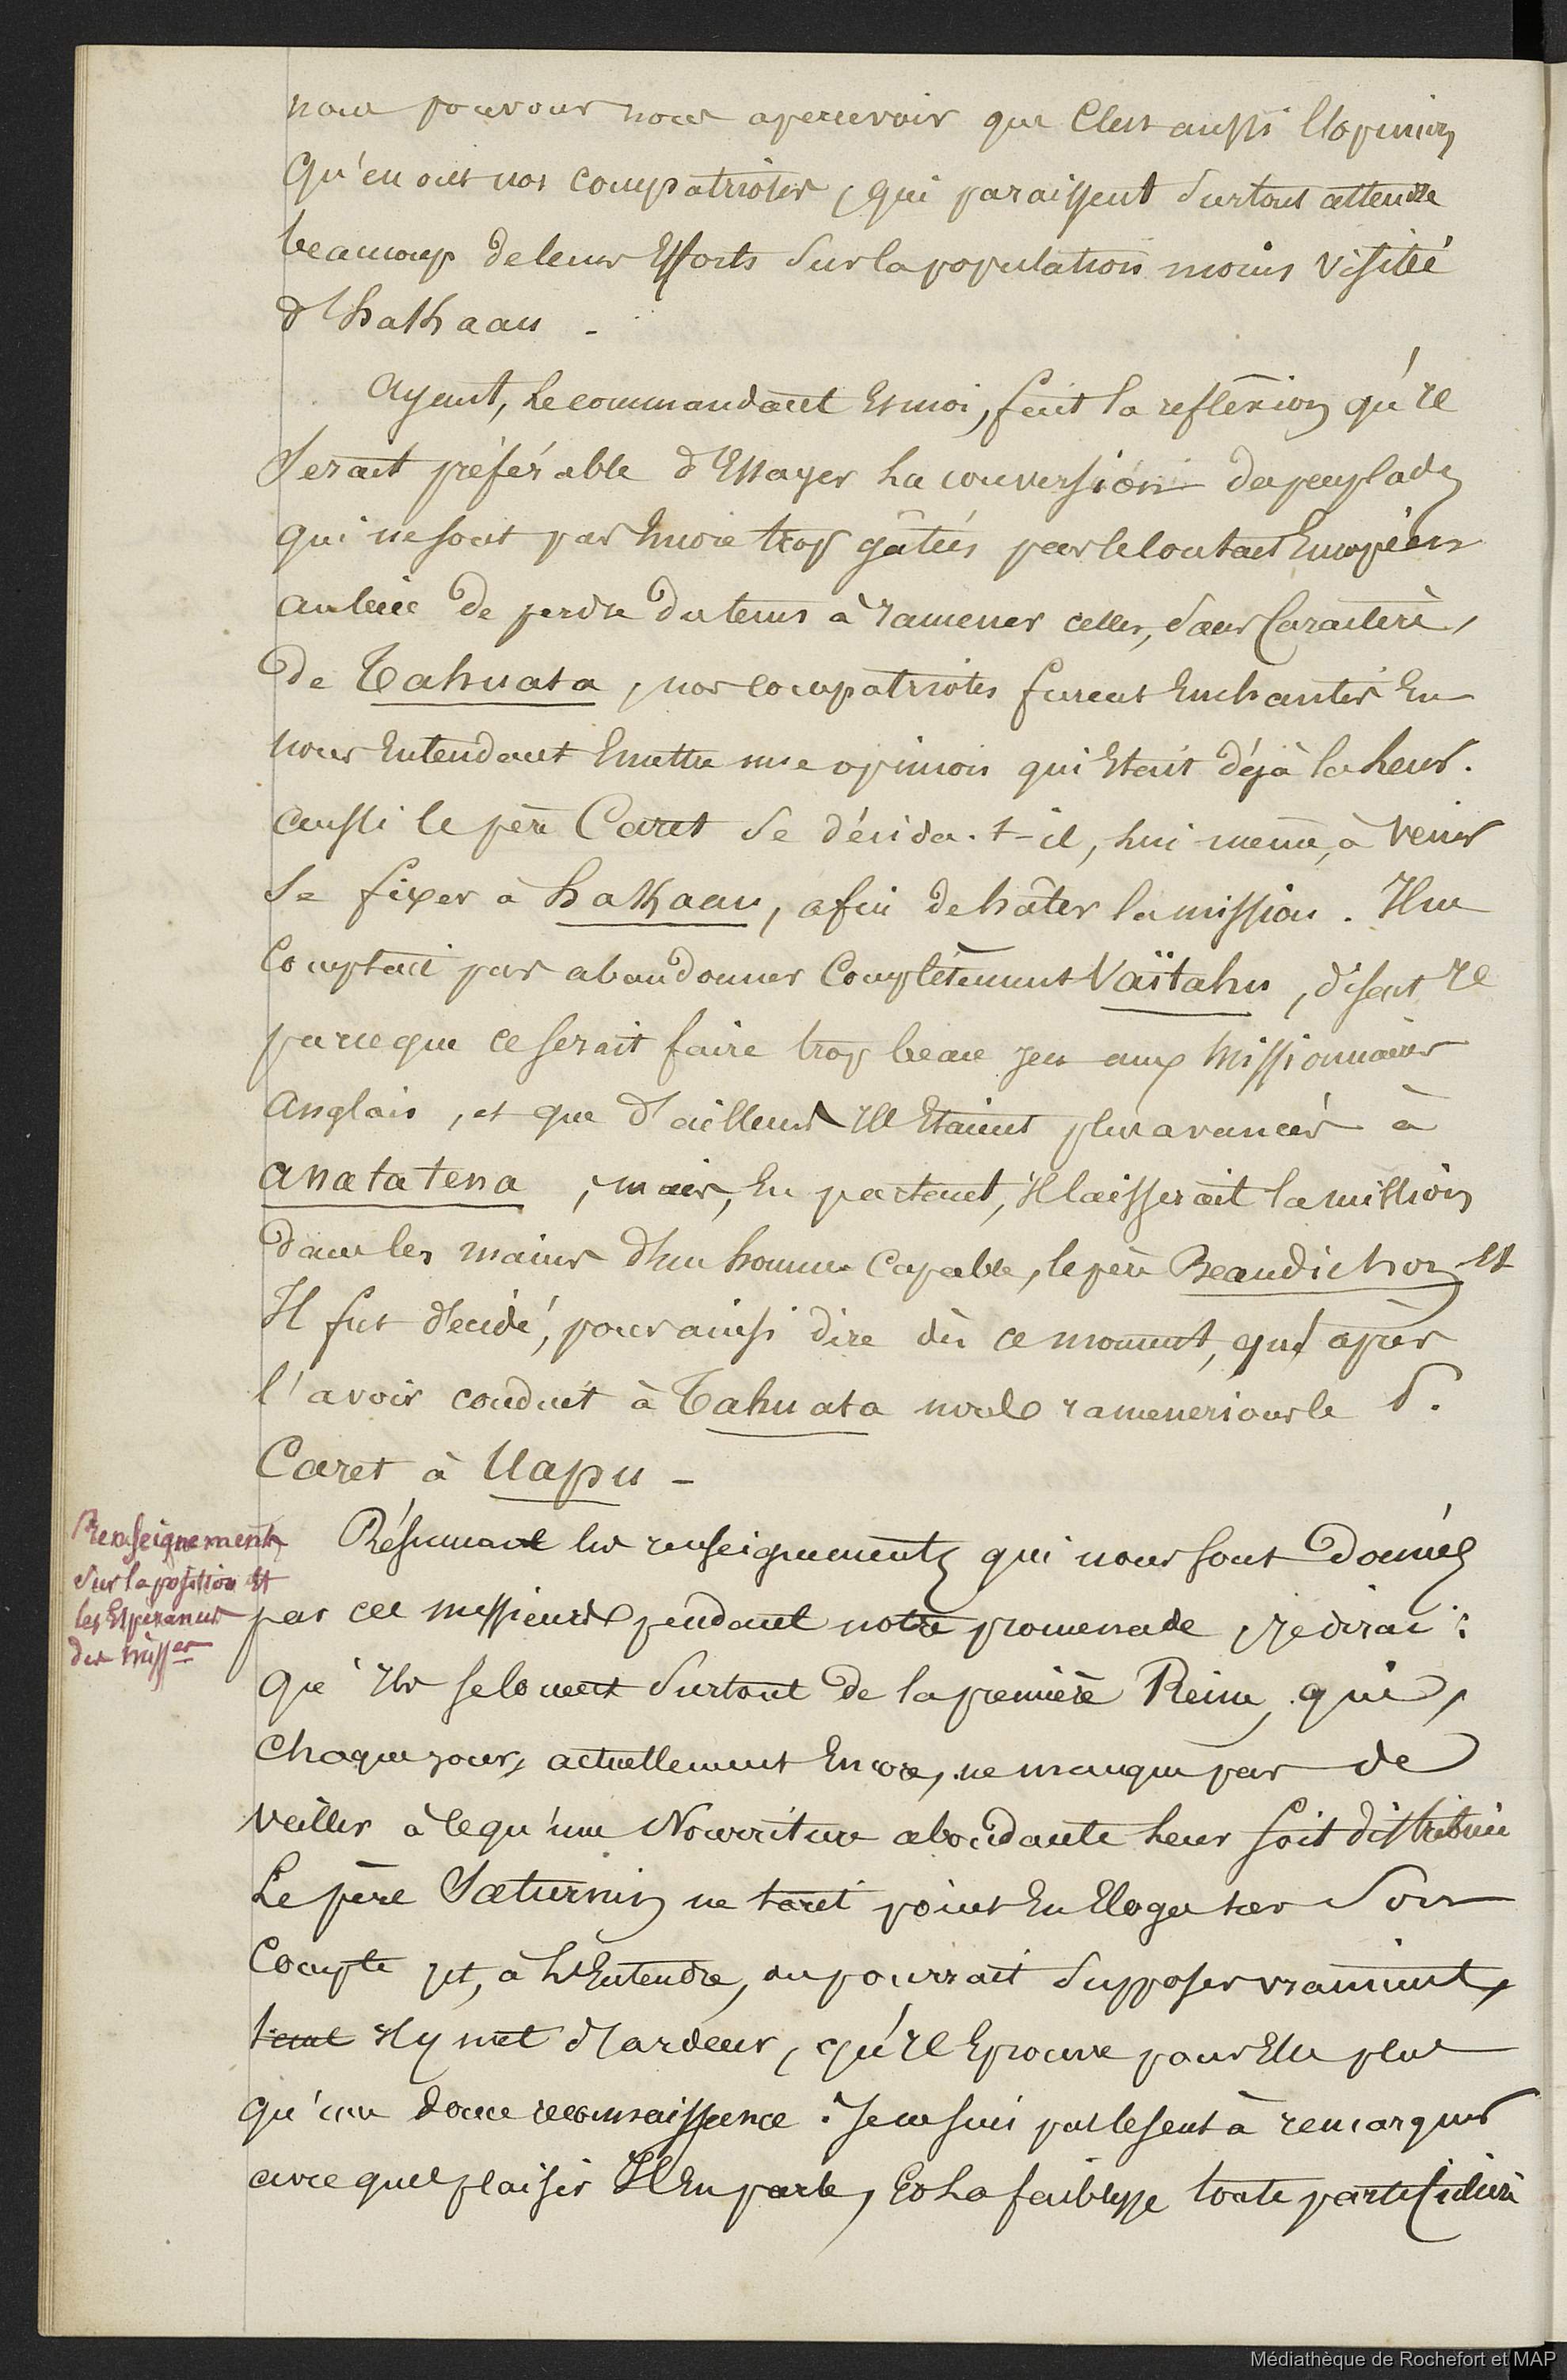 nous pouvons nous apercevoir que C'est aussi l'opinion
Qu'en ont nos compatriotes, qui paraissent surtout attendre
beaucoup de leurs Efforts sur la population moins visitée
d'hakhaau -
ayant, le commandant Et moi, fait la reflexion qu'Il
serait préférable d'Essayer la conversion de peuplades
qui ne sont pas Encore trop gâtées par le contact Européen
au lieu de perdre du tems à ramener celles, sans Caractère,
de Tahuata, nos compatriotes furent Enchantés En
nous Entendant Emettre une opinion qui Etait déjà la leur.
aussi le père Caret se décida-t-il, lui même, à venir
se fixer à hakhaau, afin de hâter la mission. Il ne
Comptait pas abandonner Complètement Vaïtahu, disait Il
parceque ce serait faire trop beau jeu aux Missionnaires
Anglais, et que d'ailleurs Ils Etaient plus avancés à
anatatena, mais, En partant, Il laisserait la mission
dans les mains d'un homme Capable, le père Beaudichon Et
Il fut décidé, pour ainsi dire dès ce moment, qu'après
l'avoir conduit à Tahuata nous ramenerions le P.
Caret à Uapu -
Renseignements
sur la position Et
les Espérances
des miss.es
Résumant les renseignements qui nous sont donnés
par ces messieurs pendant notre promenade, je dirai :
qu'Ils se louent surtout de la première Reine, qui,
chaque jour, actuellement Encore, ne manque pas de
veiller à ce qu'une Nourriture abondante leur soit distribuée
Le père Saturnin ne tarit point En Eloges sur Son
Compte Et, à l'Entendre, on pourrait supposer vraiment,
tant Il y met d'ardeur, qu'Il Eprouve pour Elle plus
qu'une douce reconnaissance. Je ne suis pas le seul à remarquer
avec quel plaisir Il En parle, Et la faiblesse toute particulière